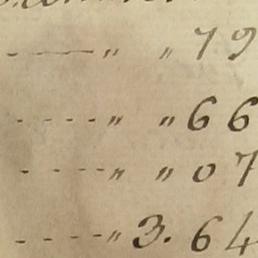 ----- " " 79
----- " " 66
----- " " 07
----- " 3. 64